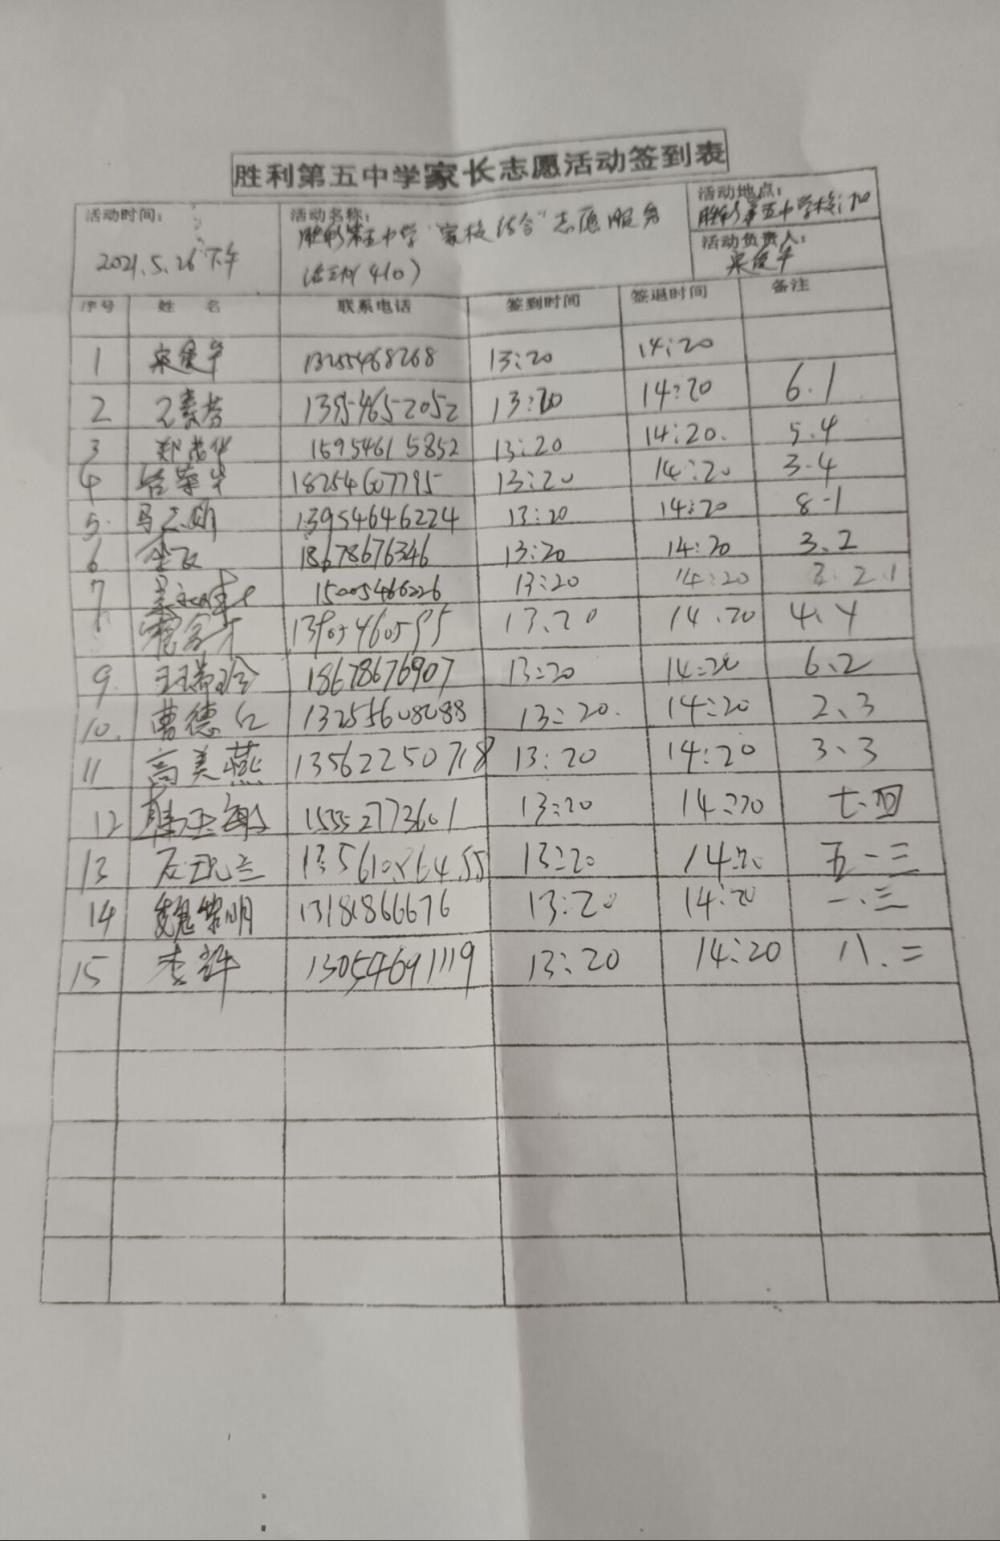 胜利第五中学家长志愿活动签到表
活动时间: 2021.5.26下午
活动名称: 胜利第五中学"家校结合"志愿服务
活动地点: 胜利第五中学校门口
活动负责人:
序号 姓 名 联系电话 签到时间 签退时间 备注
1 13255468268 13:20 14:20
2 13954652052 13:20 14:20 6.1
3 15954615852 13:20 14:20. 5.4
4 18254607795 13:20 14:20 3.4
5. 13954646224 13:20 14:20 8-1
6 18678676346 13:20 14:20 3.2
7 15005466026 13:20 14:20 3.2.1
13.20 14.20 4.4
9. 王瑞玲 18678676907 13:20 14:20 6.2
10. 曹德仁 13255608088 13:20. 14:20 2、3
11 高美燕 13562250718 13:20 14:20 3、3
12 15552773601 13:20 14:20 七.四
13 13:20 14:20 五一三
14 魏黎明 13181866676 13:20 14:20 一、三
15 李辉 13054691119 13:20 14:20 八.二